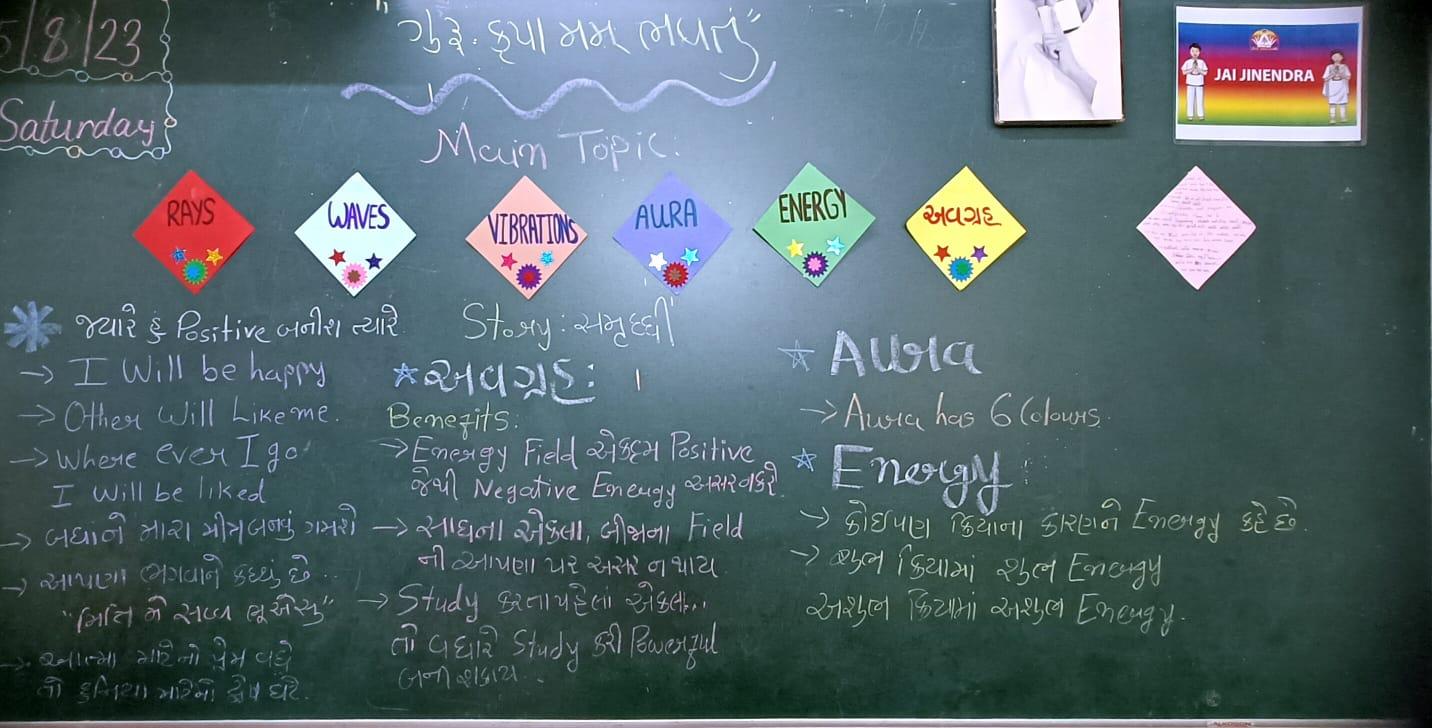 5/8/23
Saturday
"ગુરુ કૃપા મમ ભવતું"
JAI JINENDRA
Main Topic.
RAYS
WAVES
VIBRATIONS
AURA
ENERGY
અવગ્રહ
જ્યારે હું Positive બનીશ ત્યારે
→ I Will be happy
→ Other Will Like me.
→ Where ever I go
I Will be liked
→ બધાંને મારા મીત્ર બનવું ગમશે
→ આપણા ભગવાને કહ્યું છે...
"મિત્તિ મે સવ્વ ભૂએસુ"
→ આત્મા માટેનો પ્રેમ વધે
તો દુનિયા માટેનો દ્વેષ ઘટે.
Story: સમૃદ્ધી
અવગ્રહ:
Benefits:
→ Energy Field એકદમ Positive
જેથી Negative Energy અસર ન કરે.
→ સાધના એકલા, બીજાના Field
ની આપણા પર અસર ન થાય
→ Study કરતા પહેલાં એકલા...
તો વધારે Study કરી Powerful
બની શકાય..
Aura
→ Aura has 6 Colours.
Energy:
→ કોઈપણ ક્રિયાના કારણને Energy કહે છે.
→ શુભ ક્રિયામાં શુભ Energy
અશુભ ક્રિયામાં અશુભ Energy.